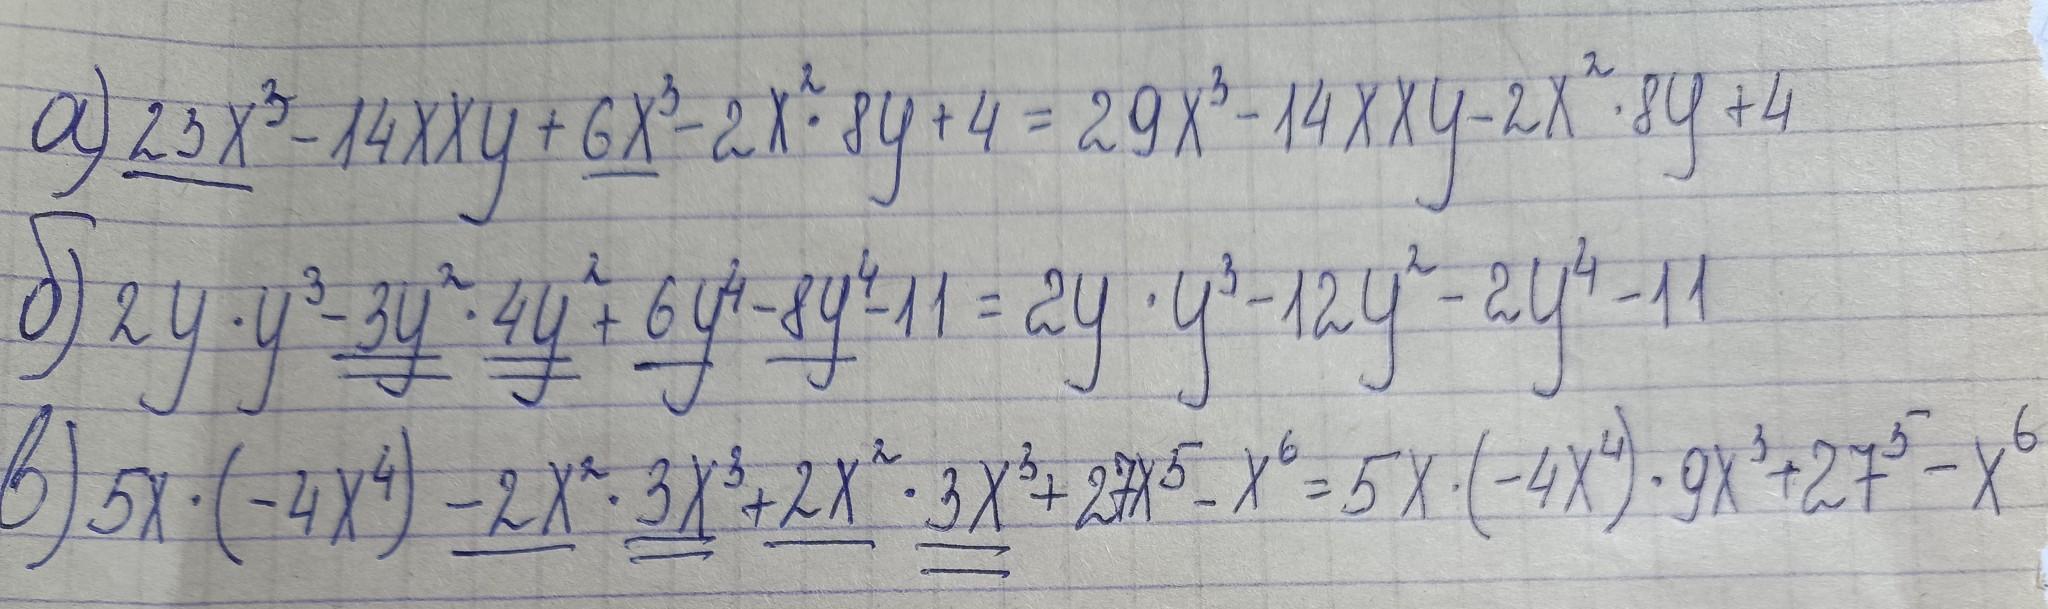 а) 23x³ - 14xxy + 6x³ - 2x² · 8y + 4 = 29x³ - 14xxy - 2x² · 8y + 4
б) 2y · y³ - 3y² · 4y² + 6y⁴ - 8y⁴ - 11 = 2y · y³ - 12y² - 2y⁴ - 11
в) 5x · (-4x⁴) - 2x² · 3x³ + 2x² · 3x³ + 27x⁵ - x⁶ = 5x · (-4x⁴) · 9x³ + 27⁵ - x⁶